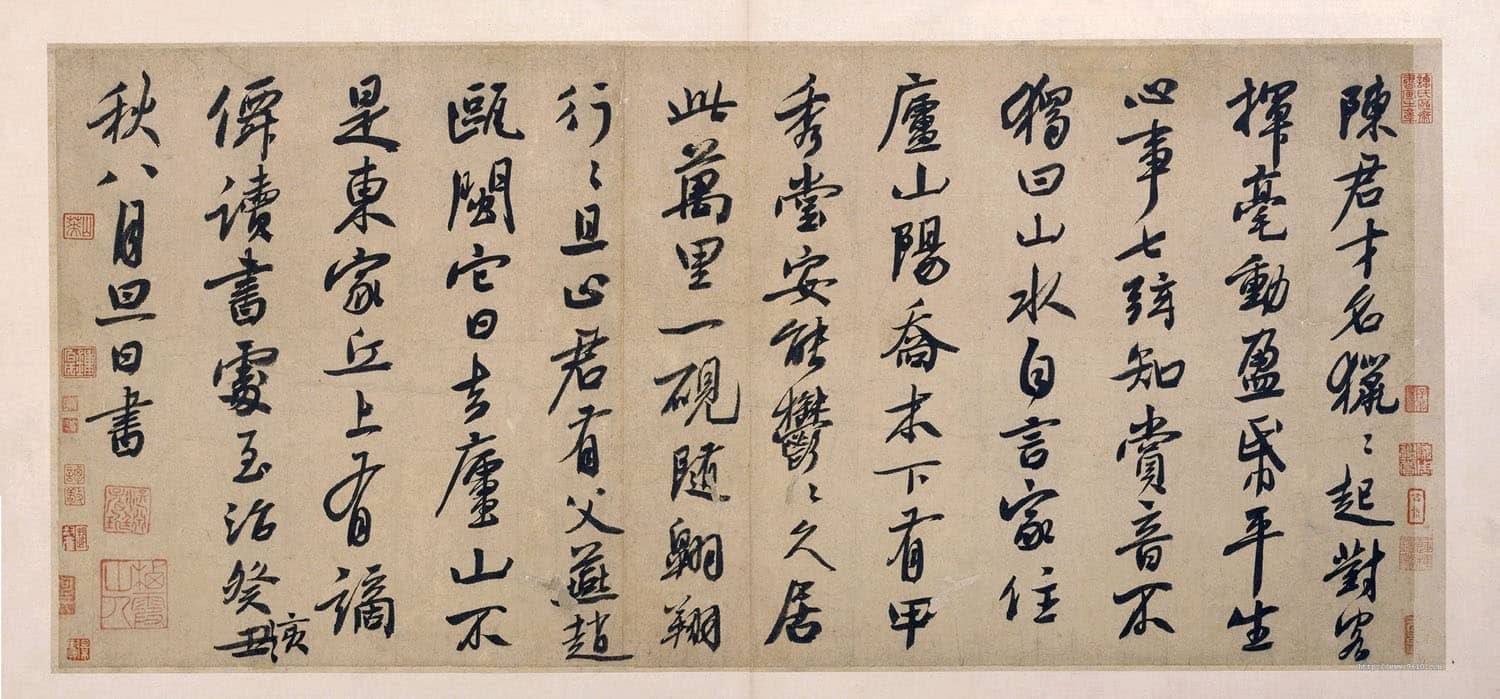 陳君才名獵〻起對客
揮毫動盈帋平生
心事七弦知賞音不
獨曰山水自言家住
廬山陽喬木下有甲
秀堂安能鬱〻久居
此萬里一硯隨翱翔
行〻且止君有父燕趙
甌閩它日去廬山不
是東家丘上有謫
僊讀書處至治癸丑亥
秋八月旦日書
http://www.9610.com